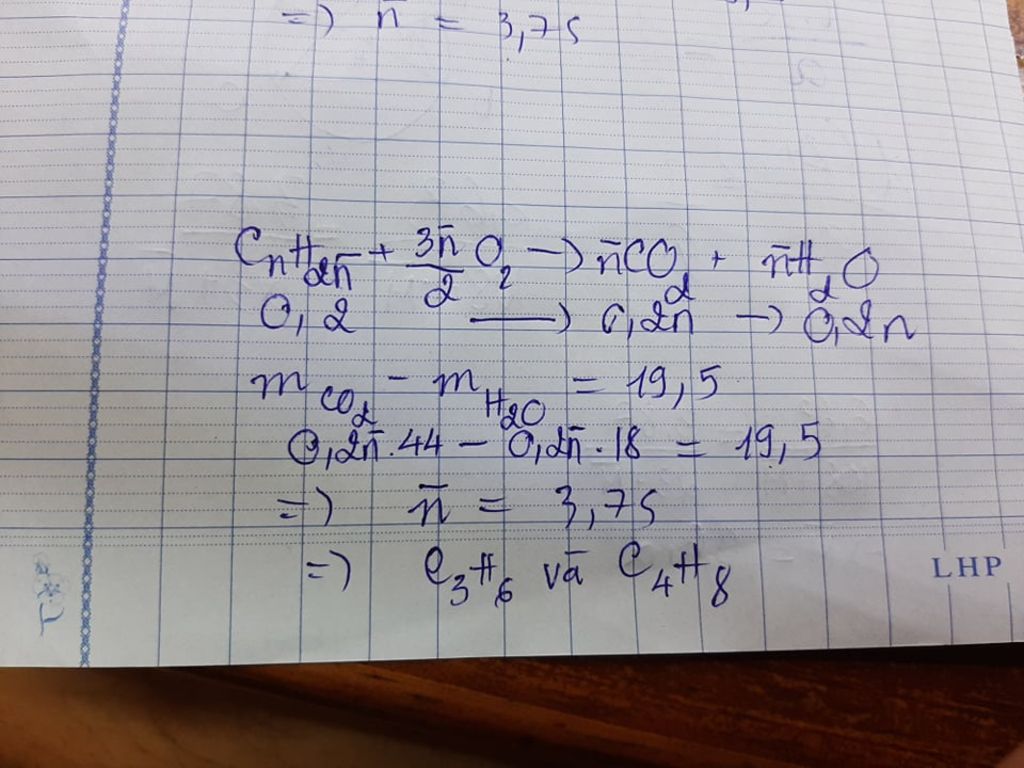 =) n̄ = 3,75
CnH2n̄ + 3n̄/2 O2 -> n̄CO2 + n̄H2O
0,2 -> 0,2n -> 0,2n
mCO2 - mH2O = 19,5
0,2n̄.44 - 0,2n̄.18 = 19,5
=) n̄ = 3,75
=) C3H6 và C4H8
LHP